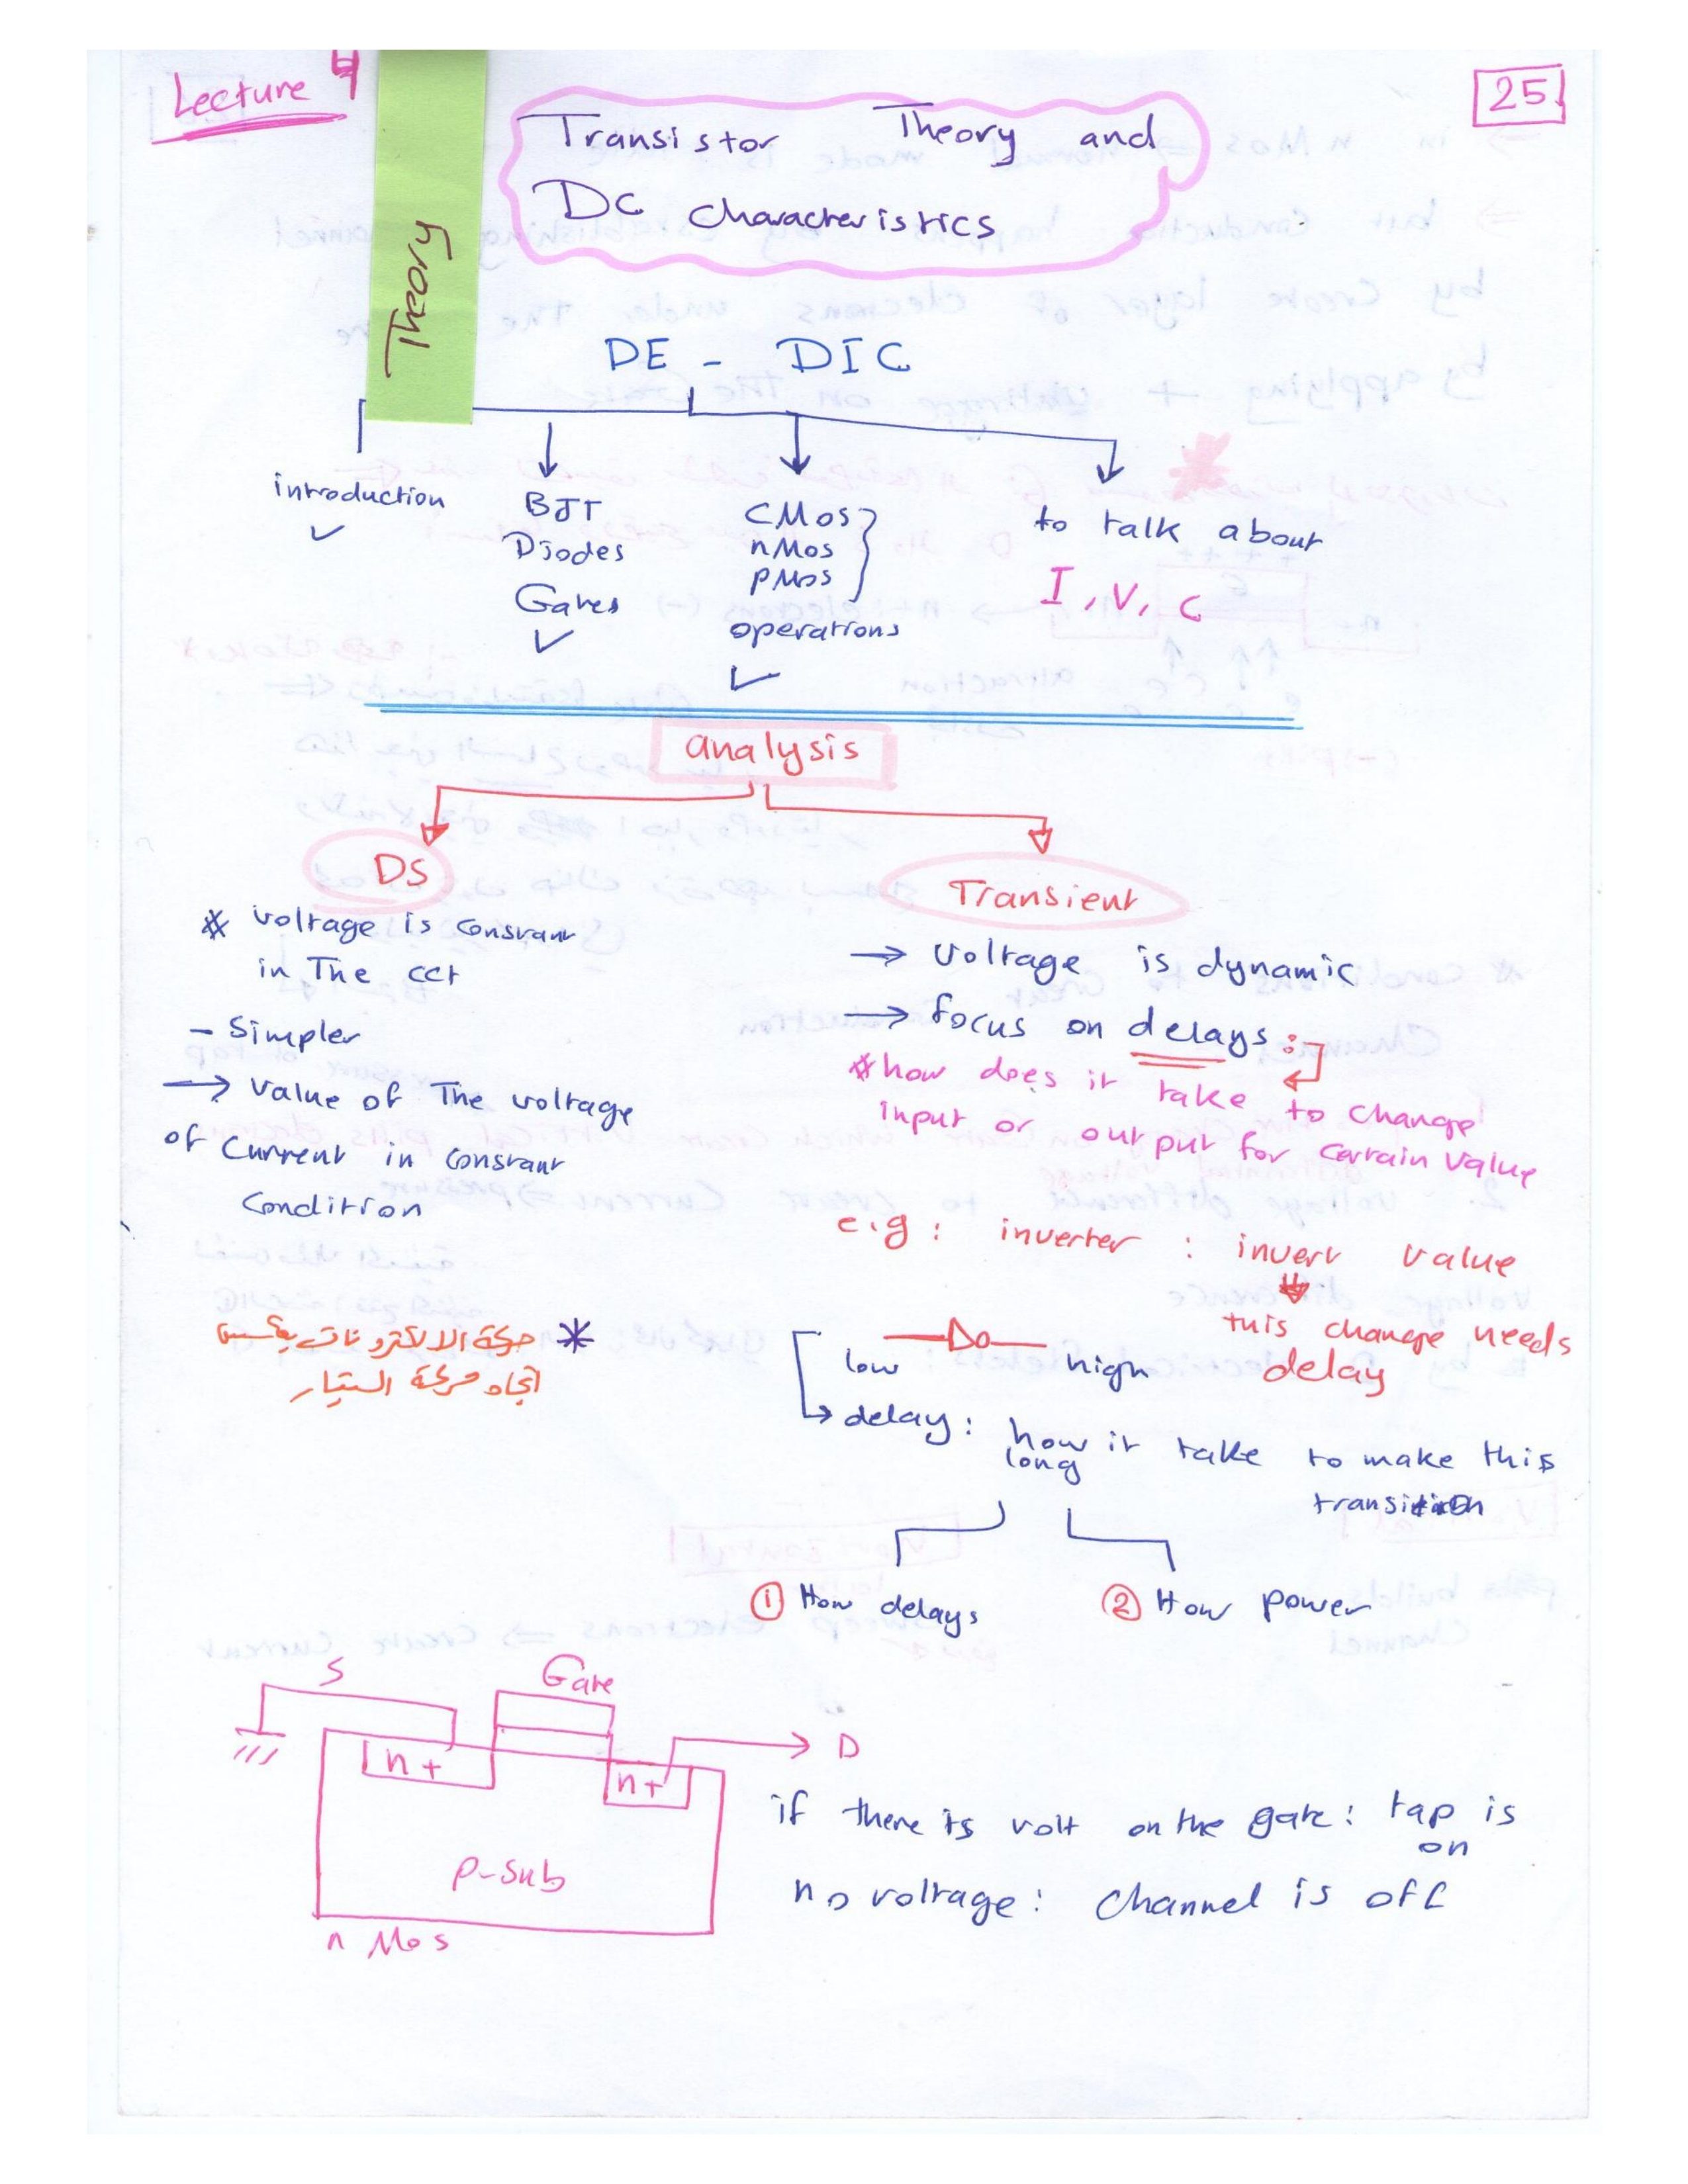 Lecture 4
25
Theory
Transistor Theory and
DC characteristics
DE - DIC
introduction
BJT
Diodes
Gates
CMos
nMos
pMos
operations
to talk about
I, V, C
analysis
DS
* voltage is constant
in The cct
- Simpler
→ value of The voltage
of Current in constant
Condition
Transient
→ voltage is dynamic
→ focus on delays :
* how does it take to change
input or output for certain value
e.g : inverter : invert value
this change needs
delay
* حركة الالكترونات بعكس
اتجاه حركة التيار
low high
delay : how it take to make this
long
transition
① How delays
② How power
S
Gate
D
n+
n+
p-sub
n Mos
if there is volt on the gate : tap is
on
no voltage : channel is off